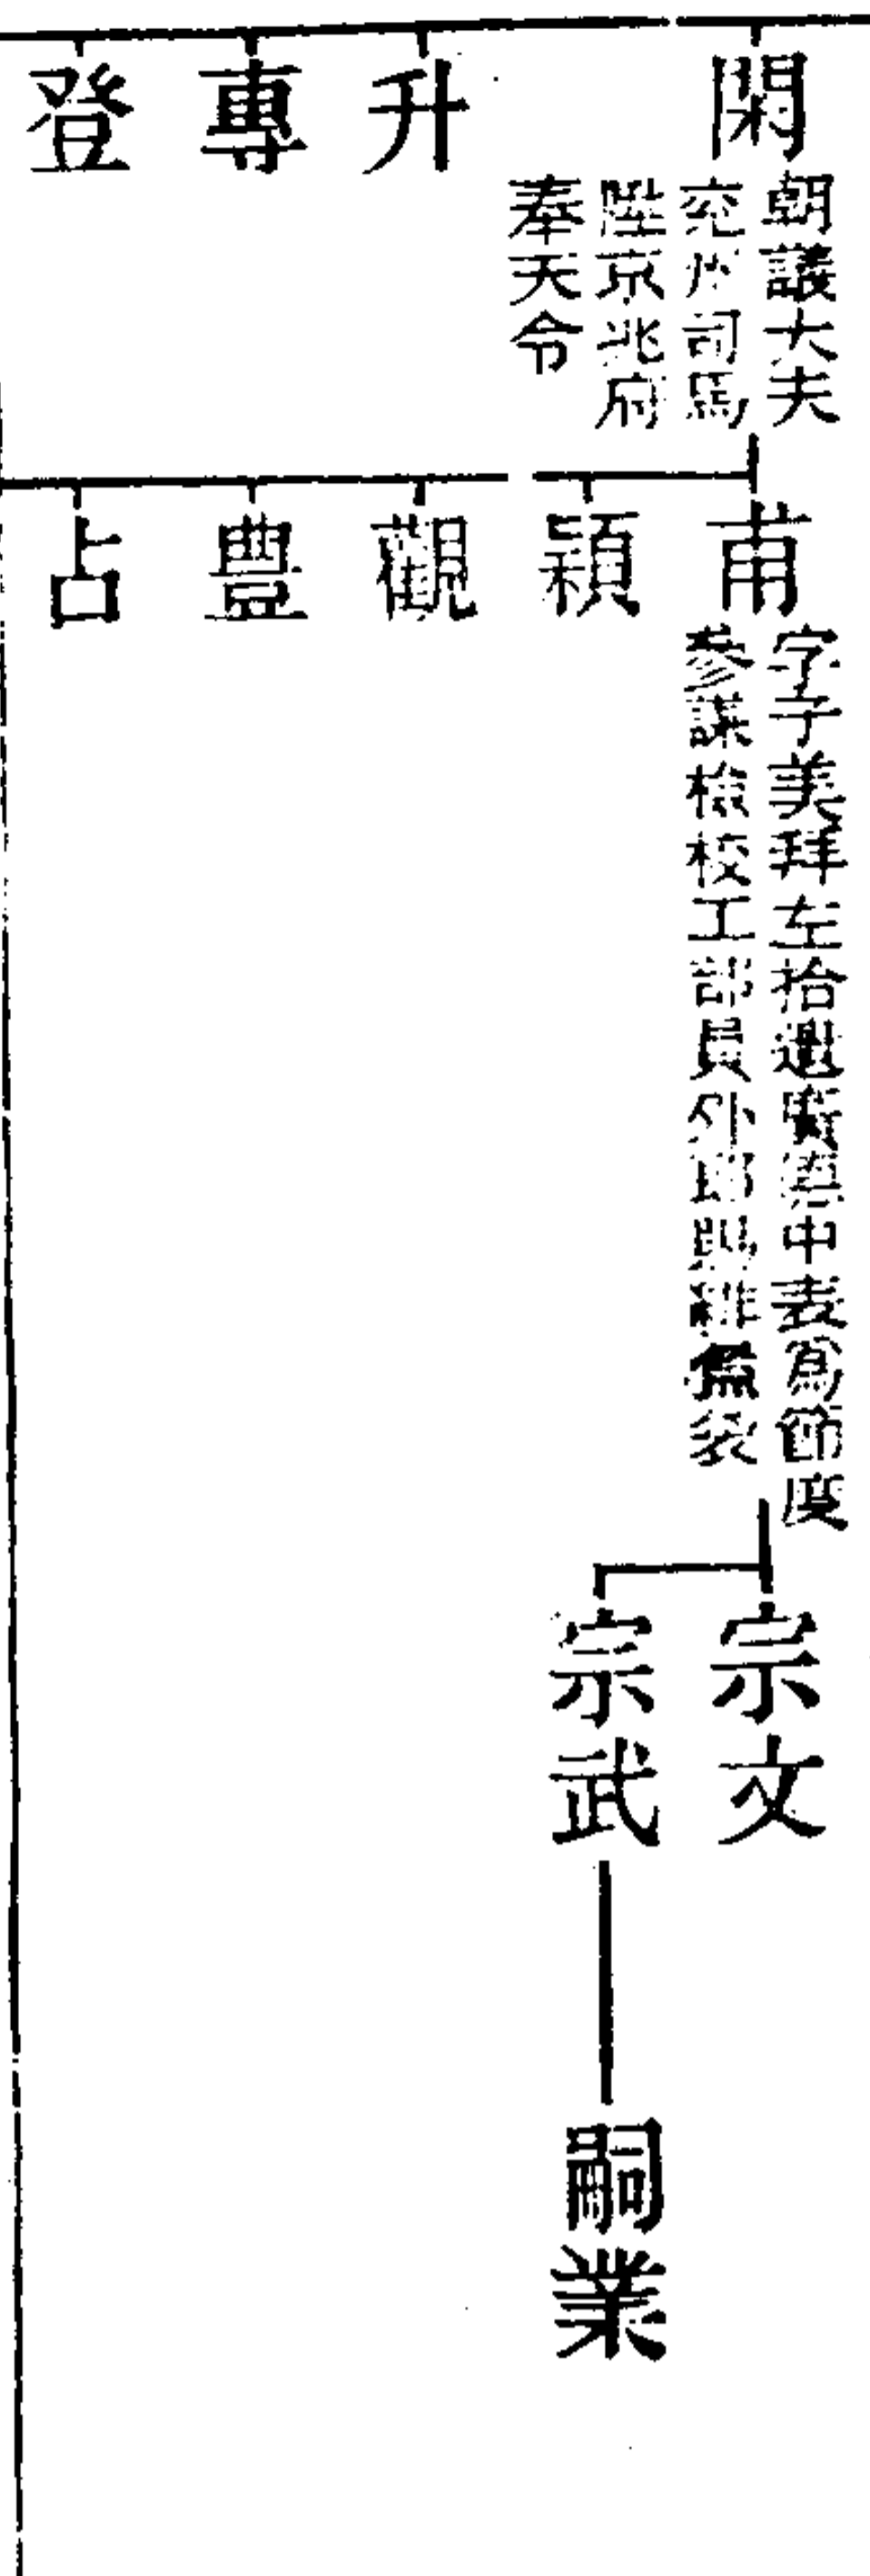 閑
朝議大夫
兖州司馬
陞京兆府
奉天令
升
專
登
甫
字子美拜左拾遺嚴 中表爲節度
參謀檢校工部員外郎賜緋 
穎
觀
豐
占
宗文
宗武
嗣業